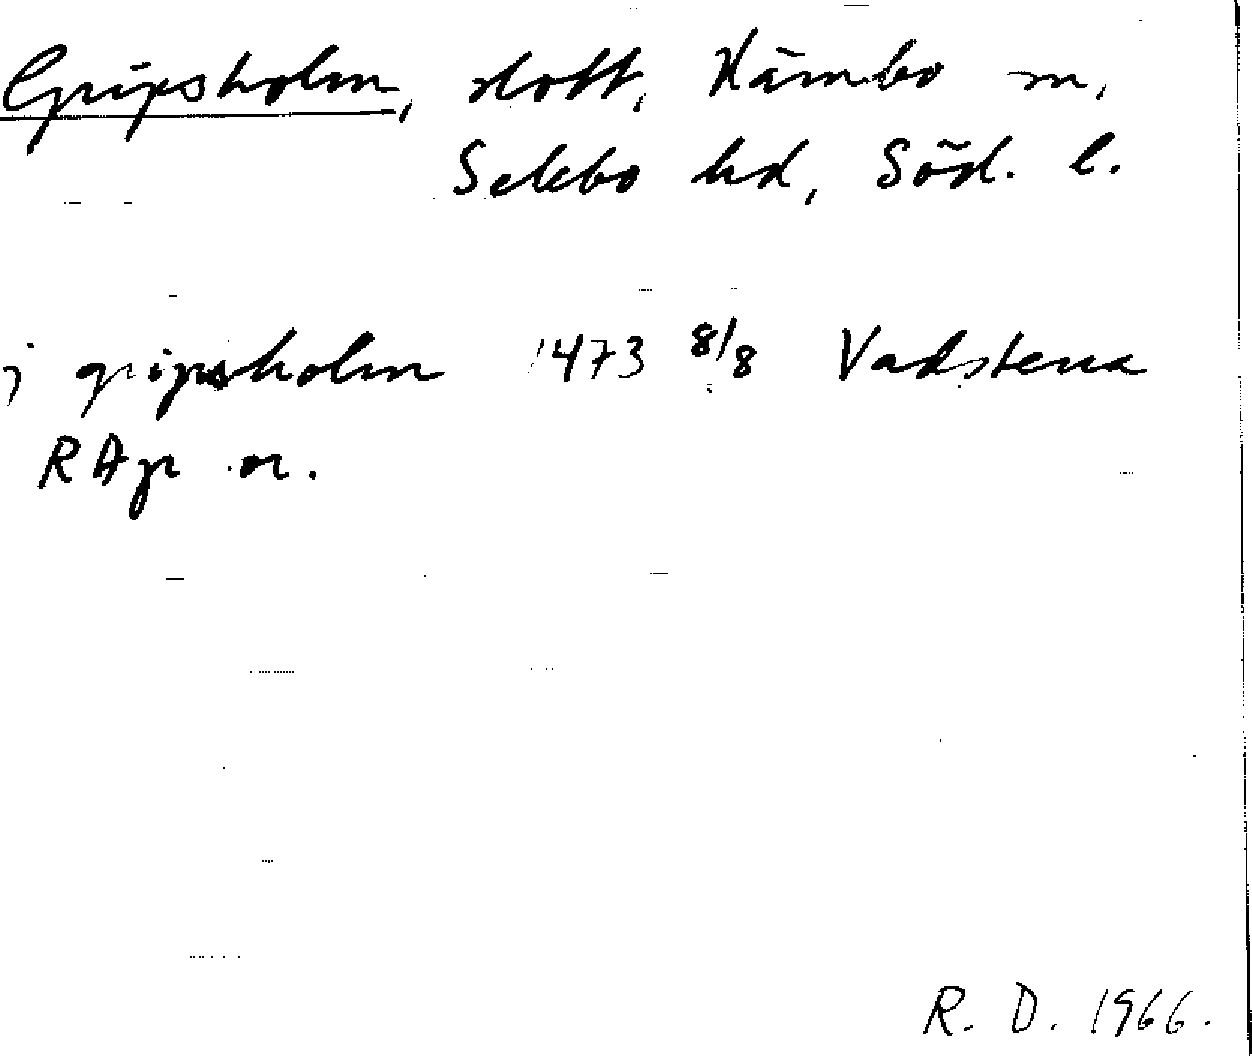 Gripsholm, slott, Kärnbo sn,
Selebo hd, Söd. l.
j gripsholm 1473 8/8 Vadstena
RAp or.
R. D. 1966.